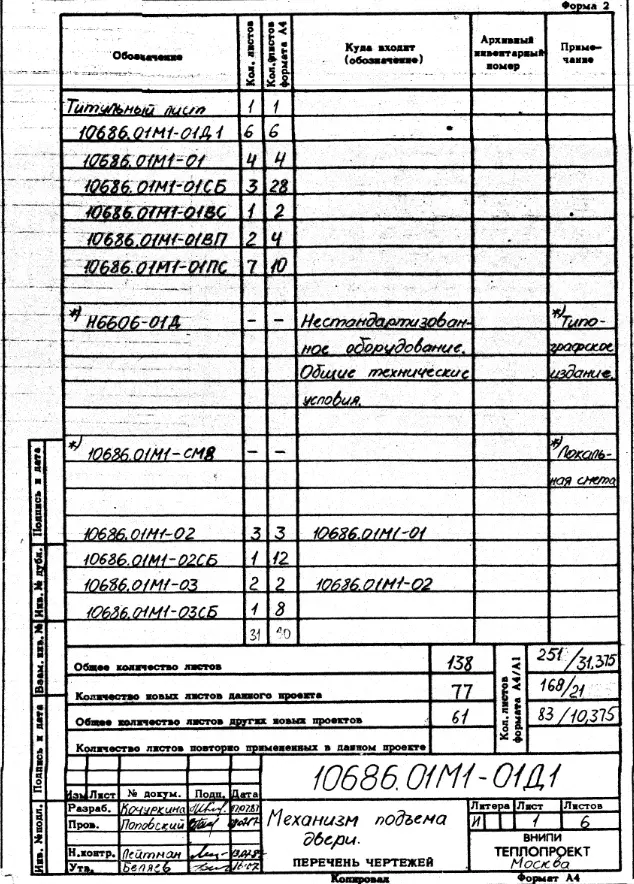 Форма 2
Обозначение
Кол. листов
Кол. листов формата А4
Куда входит (обозначение)
Архивный инвентарный номер
Приме-чание
Титульный лист 1 1
10686.01М1-01Д1 6 6
10686.01М1-01 4 4
10686.01М1-01СБ 3 28
10686.01М1-01ВС 1 2
10686.01М1-01ВП 2 4
10686.01М1-01ПС 7 10
*) Н6606-01Д – – Нестандартизован- *) Типо-
ное оборудование. графское
Общие технические издание.
условия.
*) 10686.01М1-СМ – – *) Локаль-
ная смета
10686.01М1-02 3 3 10686.01М1-01
10686.01М1-02СБ 1 12
10686.01М1-03 2 2 10686.01М1-02
10686.01М1-03СБ 1 8
31
Общее количество листов 138 251/31,375
Количество новых листов данного проекта 77 168/21
Общее количество листов других новых проектов 61 83/10,375
Количество листов повторно примененных в данном проекте
Кол. листов формата А4/А1
10686.01М1-01Д1
Изм Лист № докум. Подп. Дата
Разраб. Кочуркина
Пров. Поповский
Н.контр. Лейтман
Утв. Беляев
Механизм подъема
двери.
ПЕРЕЧЕНЬ ЧЕРТЕЖЕЙ
Литера Лист Листов
И 1 6
ВНИПИ
ТЕПЛОПРОЕКТ
Москва
Копировал Формат А4
Подпись и дата
Инв. № дубл.
Взам. инв. №
Подпись и дата
Инв. № подл.